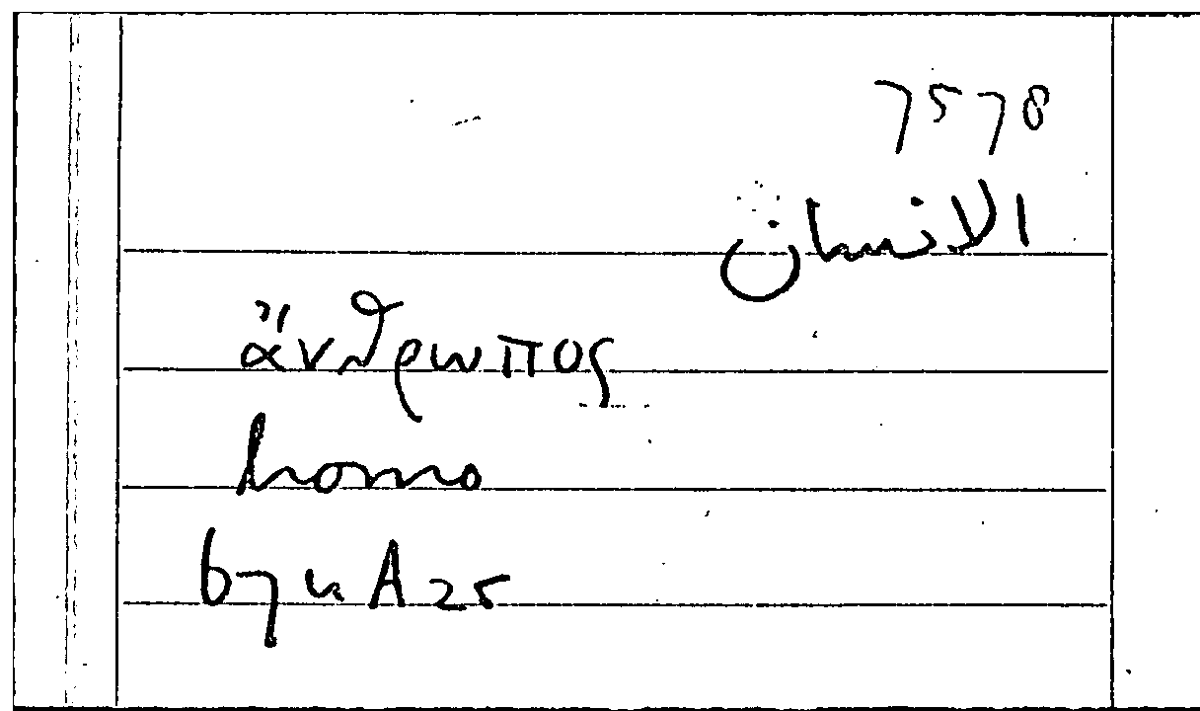 7578
الانسان
ἄνθρωπος
homo
67 u A 25